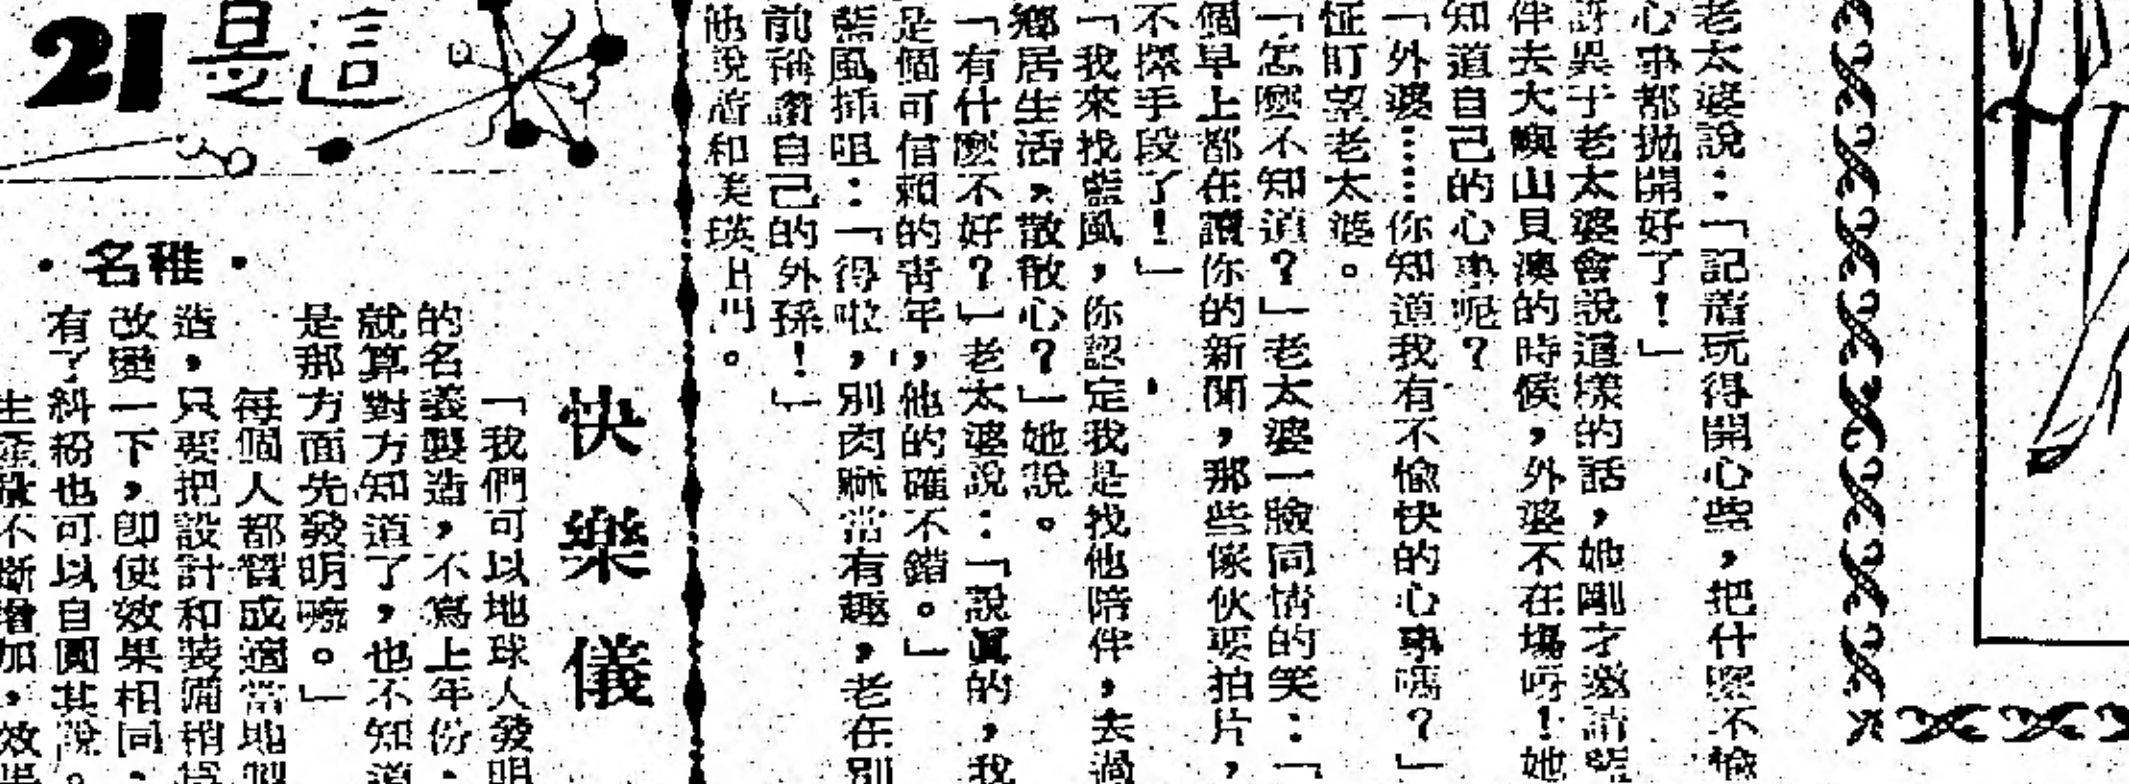 老太婆說：「記着玩得開心些，把什麼不愉
心事都拋開好了！」
訝異于老太婆會說這樣的話，她剛才邀請藍
伴去大嶼山貝澳的時候，外婆不在塲呀！她
知道自己的心事呢？
「外婆……你知道我有不愉快的心事嗎？」
怔盯望老太婆。
「怎麼不知道？」老太婆一臉同情的笑：「
個早上都在讀你的新聞，那些傢伙要拍片，
不擇手段了！」
「我來找藍風，你認定我是找他陪伴，去過
鄉居生活，散散心？」她說。
「有什麼不好？」老太婆說：「說眞的，我
是個可信賴的靑年，他的確不錯。」
藍風插咀：「得啦，別肉麻當有趣，老在別
前稱讚自己的外孫！」
他說着和美瑛出門。
這是21
·稚名·
快樂儀
「我們可以地球人發明
的名義製造，不寫上年份，
就算對方知道了，也不知道
是那方面先發明嘛。」
每個人都贊成適當地製
造，只要把設計和裝備稍
改變一下，卽使效果相同，
有了糾紛也可以自圓其說。
生產設不斷增加，效果